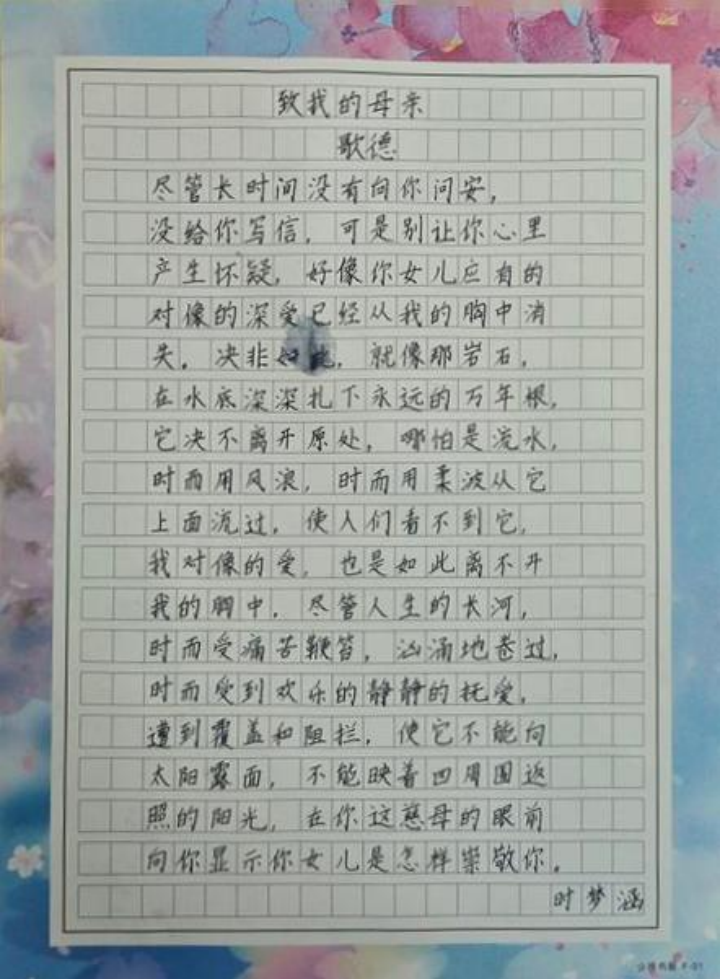 致我的母亲
歌德
尽管长时间没有向你问安，
没给你写信，可是别让你心里
产生怀疑，好像你女儿应有的
对像的深爱已经从我的胸中消
失。决非如此，就像那岩石，
在水底深深扎下永远的万年根，
它决不离开原处，哪怕是流水，
时而用风浪，时而用柔波从它
上面流过，使人们看不到它，
我对像的爱，也是如此离不开
我的胸中，尽管人生的长河，
时而受痛苦鞭笞，汹涌地卷过，
时而受到欢乐的静静的抚爱，
遭到覆盖和阻拦，使它不能向
太阳露面，不能映着四周围返
照的阳光，在你这慈母的眼前
向你显示你女儿是怎样崇敬你。
时梦涵